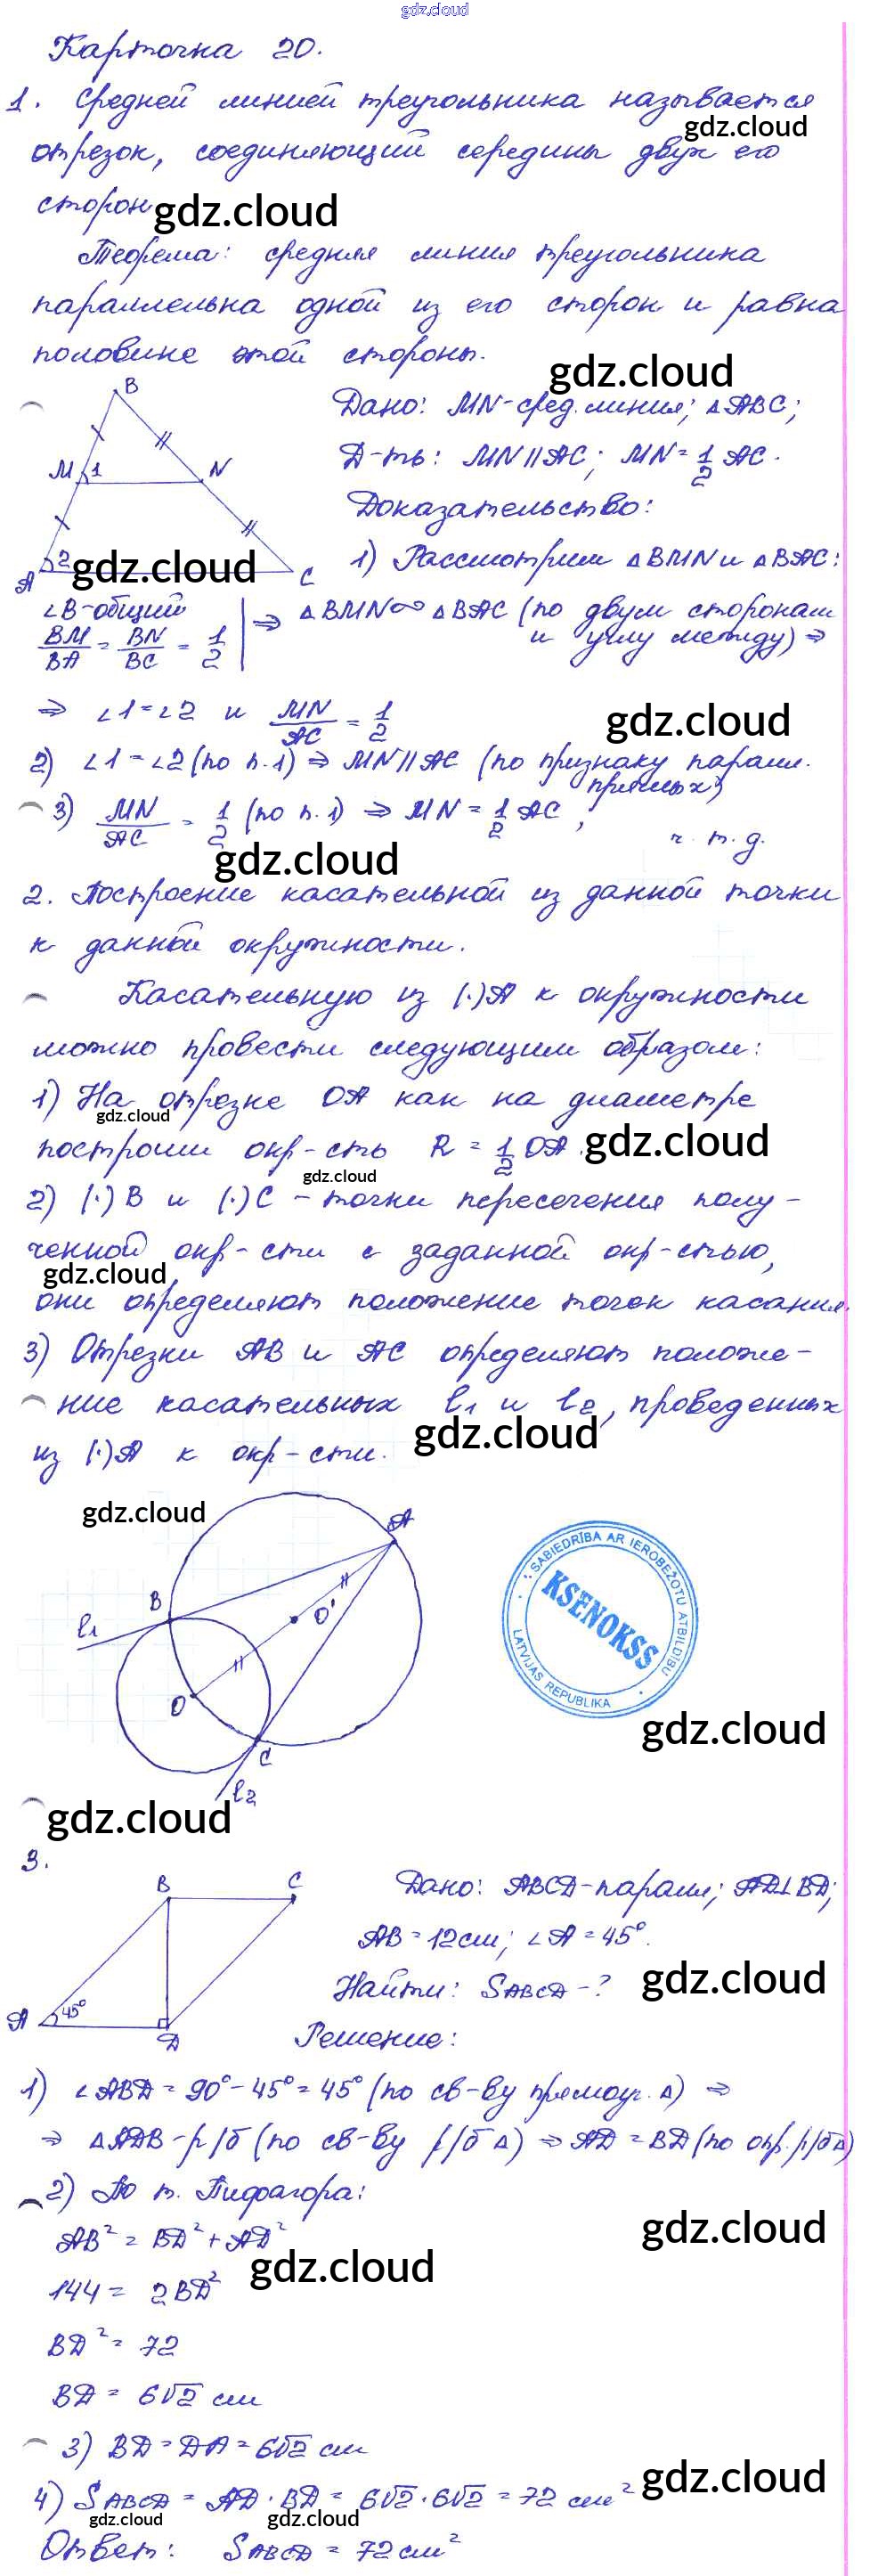 gdz.cloud
Карточка 20.
1. Средней линией треугольника называется
gdz.cloud
отрезок, соединяющий середины двух его
сторон
gdz.cloud
Теорема: средняя линия треугольника
параллельна одной из его сторон и равна
половине этой стороны.
gdz.cloud
B
Дано: MN-сред. линия; △ABC;
M 1 N
Д-ть: MN||AC; MN=1/2 AC.
Доказательство:
A 2 C
gdz.cloud
1) Рассмотрим △BMN и △BAC:
∠B-общий
BM/BA = BN/BC = 1/2 | ⇒ △BMN∞△BAC (по двум сторонам
и углу между) ⇒
⇒ ∠1=∠2 и MN/AC = 1/2
gdz.cloud
2) ∠1=∠2 (по п.1) ⇒ MN||AC (по признаку паралл.
прямых)
3) MN/AC = 1/2 (по п.1) ⇒ MN = 1/2 AC,
ч.т.д.
gdz.cloud
2. Построение касательной из данной точки
к данной окружности.
Касательную из (·)A к окружности
можно провести следующим образом:
1) На отрезке OA как на диаметре
gdz.cloud
построим окр-сть R = 1/2 OA.
gdz.cloud
gdz.cloud
2) (·)B и (·)C - точки пересечения полу-
ченной окр-сти с заданной окр-стью,
gdz.cloud
они определяют положение точек касания.
3) Отрезки AB и AC определяют положе-
ние касательных l1 и l2, проведенных
gdz.cloud
из (·)A к окр-сти.
gdz.cloud
A
B
l1
O'
O
C
l2
SABIEDRĪBA AR IEROBEŽOTU ATBILDĪBU
KSENOKSS
LATVIJAS REPUBLIKA
gdz.cloud
gdz.cloud
3.
B C
Дано: ABCD-паралл; AD⊥BD;
AB=12см; ∠A=45°.
gdz.cloud
Найти: SABCD-?
A 45° D
Решение:
1) ∠ABD = 90°-45°=45° (по св-ву прямоуг. △) ⇒
⇒ △ADB-р/б (по св-ву р/б △) ⇒ AD=BD (по опр. р/б△)
2) По т. Пифагора:
gdz.cloud
AB²=BD²+AD²
gdz.cloud
144= 2BD²
BD²=72
BD = 6√2 см
3) BD=DA=6√2 см
gdz.cloud
4) SABCD = AD·BD= 6√2·6√2=72 см²
gdz.cloud
gdz.cloud
Ответ: SABCD=72см²